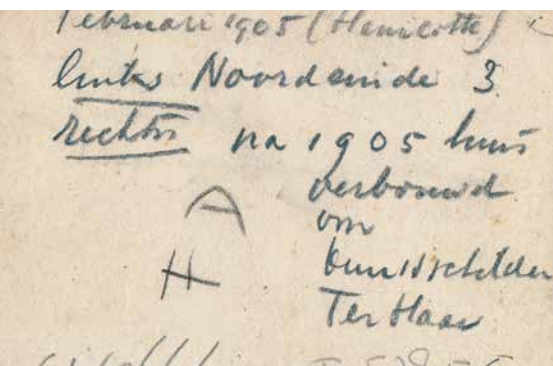 Februari 1905 (Henriette)
links Noordeinde 3
rechts na 1905 huis
verbouwd
HD
kunstschilder
Ter Haar